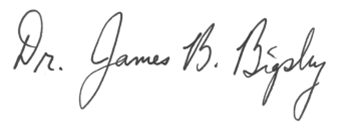 Dr. James B. Bigsby